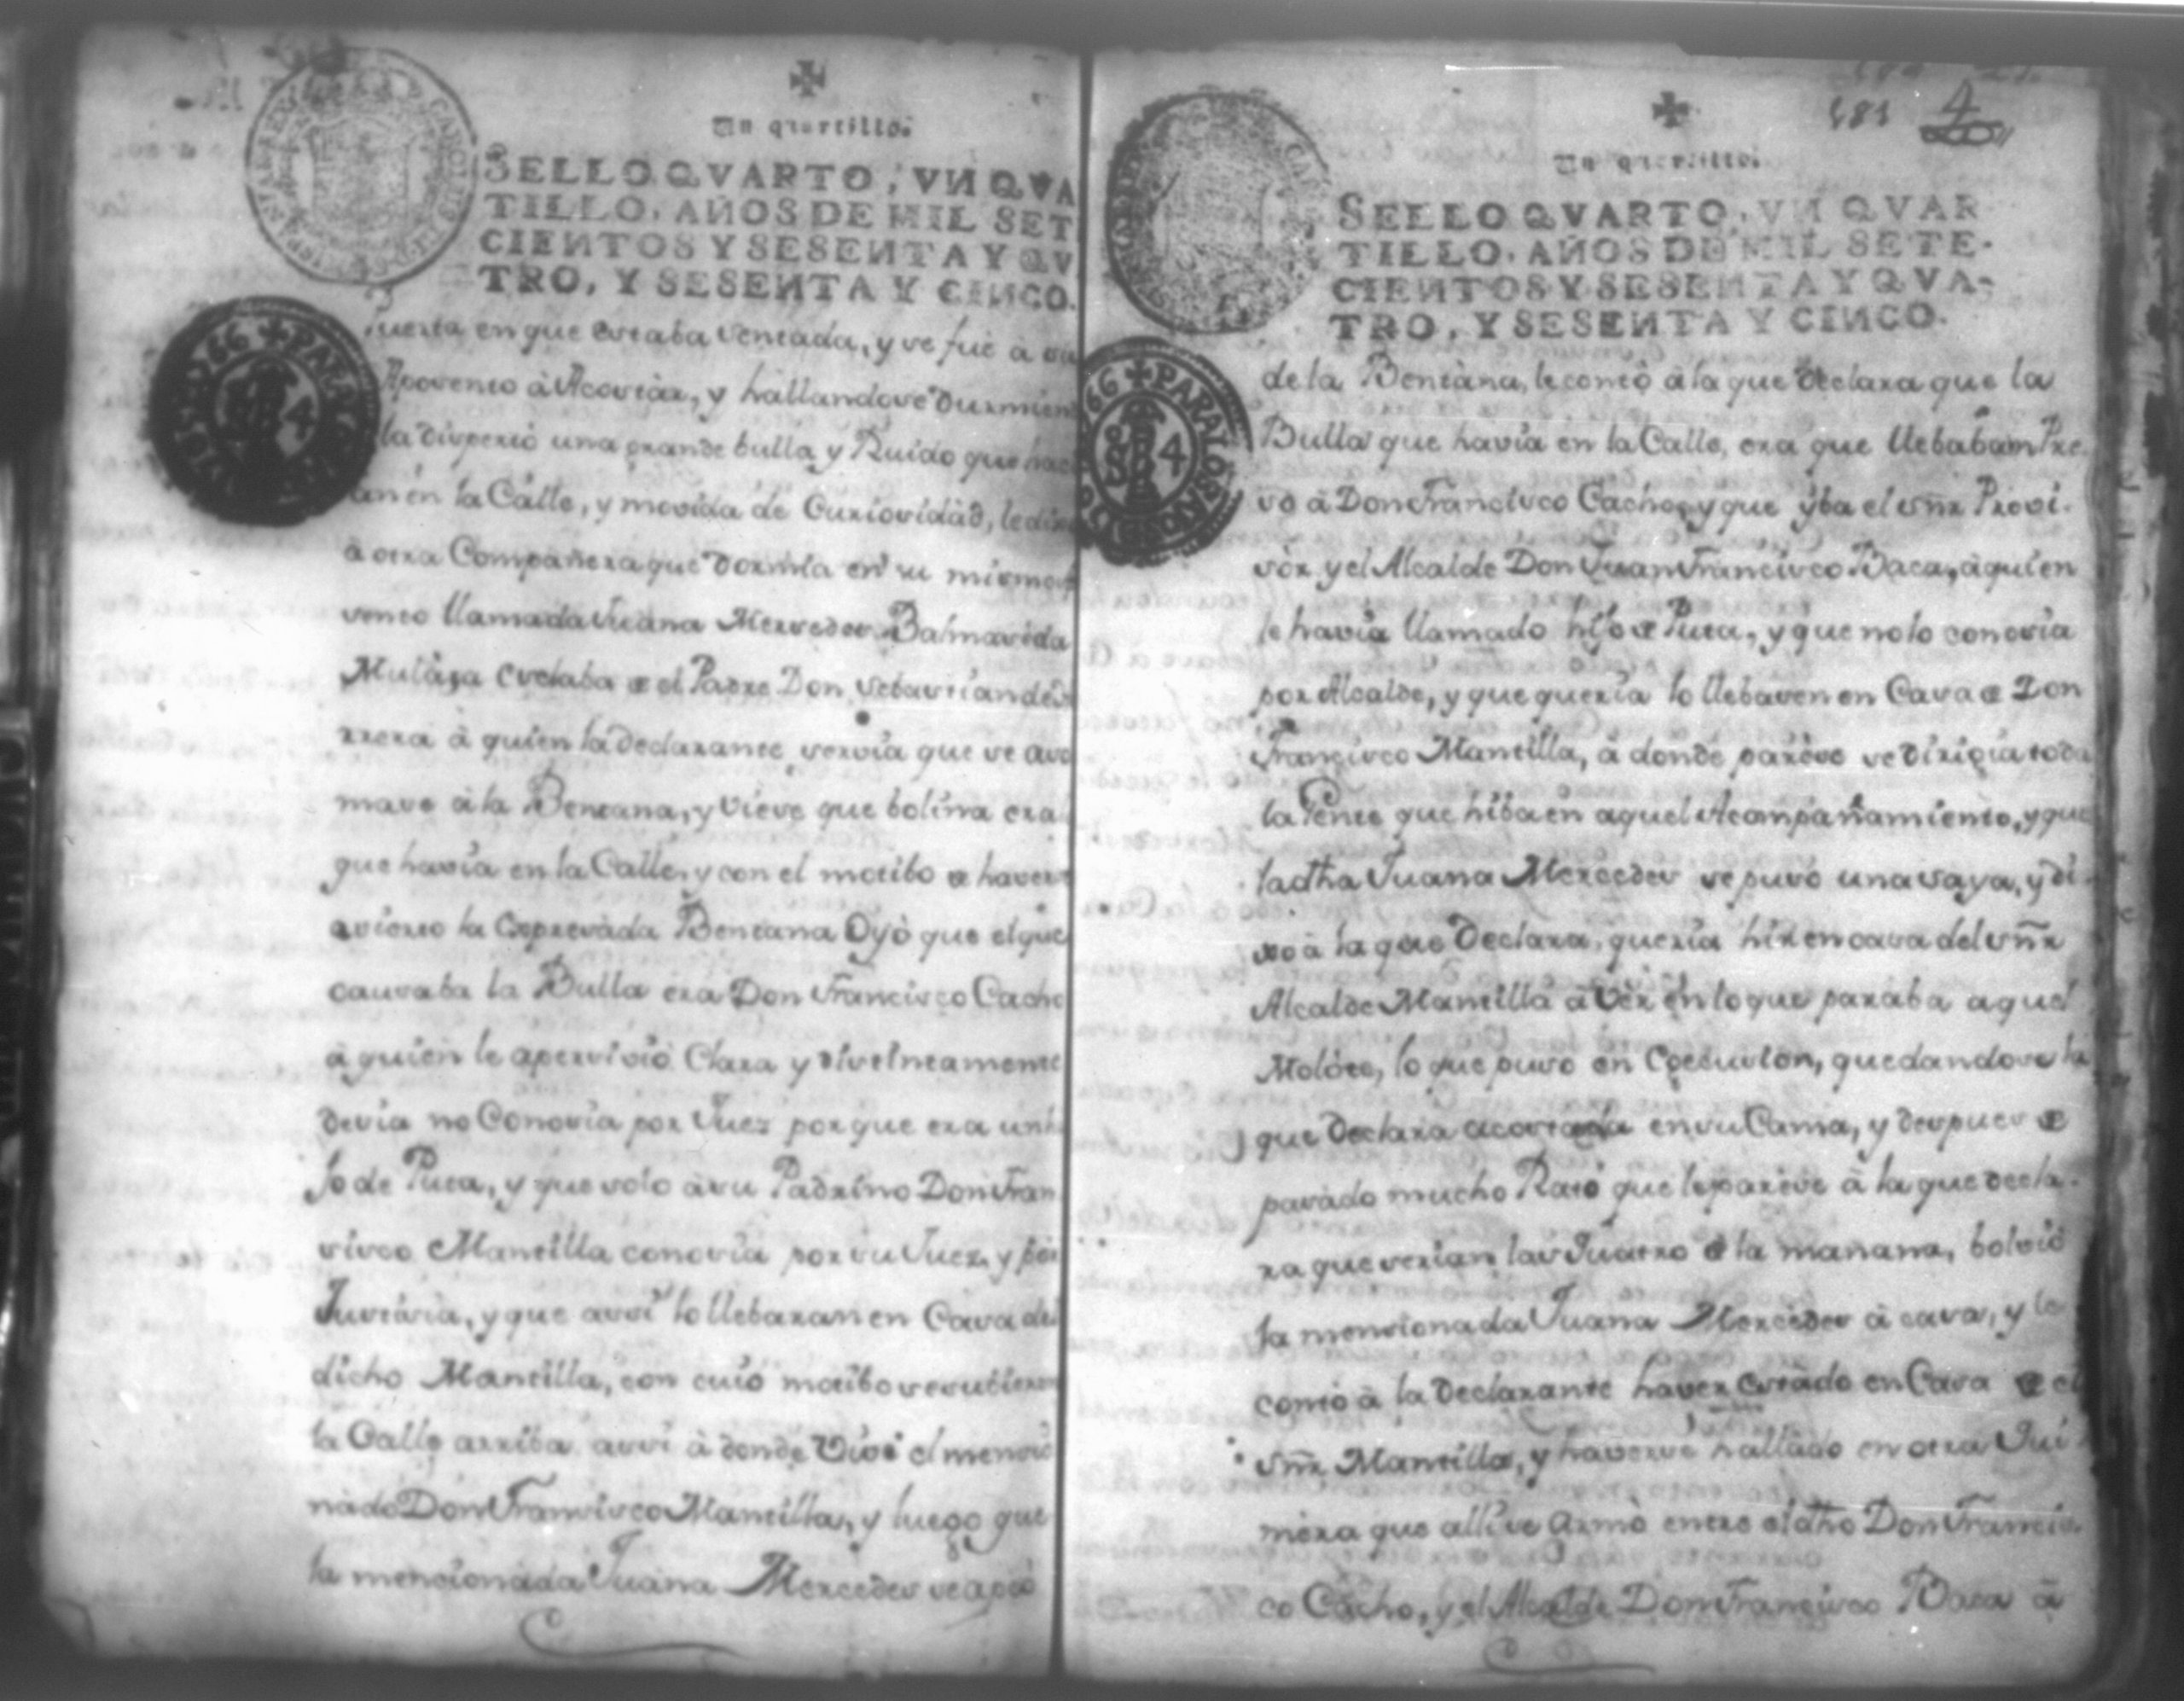 Un quartillo.
SELLO QVARTO, VN QVA
TILLO, AÑOS DE MIL SET
CIENTOS Y SESENTA Y QV
TRO, Y SESENTA Y CINCO.
Puerta en que estaba sentada, y se fue à su
Aposento à Acostàr, y hallandose durmien
la dispertó una grande bulla y Ruido que hac
an en la Calle, y movida de Curiosidàd, le dixo
à otra Compañera que dormia en su mismo
sento llamada Juana Mercedes Balmaseda
Mulàta esclaba de el Padre Don Sebastian de
rrera à quien la declarante servia que se aso
mase à la Bentana, y viese que bolina era
que havia en la Calle, y con el motibo de haver
avierto la expresàda Bentana Oyò que el que
causaba la Bulla era Don Francisco Cacho
à quien le apersivió Clara y distintamente
desia no Conosia por Juez porque era un hi
jo de Puta, y que solo à su Padrino Don Fran
sisco Mantilla conosia por su Juez, y por
Justisia, y que assi lo llebaran en Casa del
dicho Mantilla, con cuio motibo se subieron
la Calle arriba assi à donde Vive el mensio
nàdo Don Fransisco Mantilla, y luego que
la mensionàda Juana Mercedes se apeó
181 4
Un quartillo.
SELLO QVARTO, VN QVAR
TILLO, AÑOS DE MIL SETE-
CIENTOS Y SESENTA Y QVA-
TRO, Y SESENTA Y CINCO.
de la Bentàna, le contò à la que declara que la
Bulla que havia en la Calle, era que llebaban Pre
so à Don Francisco Cacho, y que yba el sñr Provi-
sòr y el Alcalde Don Juan Francisco Baca, à quien
le havia llamado hijo de Puta, y que no lo conosia
por Alcalde, y que queria lo llebasen en Casa de Don
Francisco Mantilla, à donde parese se dirigia toda
la Jente que hiba en aquel Acompañamiento, y que
la dha Juana Mercedes se pusò una saya, y di-
xo à la que declara, queria hir en casa del sñr
Alcalde Mantilla à Vèr en lo que paraba aquel
Molóte, lo que puso en Coecusion, quedandose la
que declara acostada en su Cama, y despues de
pasàdo mucho Rato que le parese à la que decla-
ra que serian las Quatro de la mañana, bolvió
la mensionada Juana Mercedes à casa, y le
contó à la declarante haver estàdo en Casa de el
sñr Mantilla, y haverse hallàdo en otra Qui-
mera que alli se armò entre el dho Don Francis-
co Cacho, y el Alcalde Don Francisco Baca à